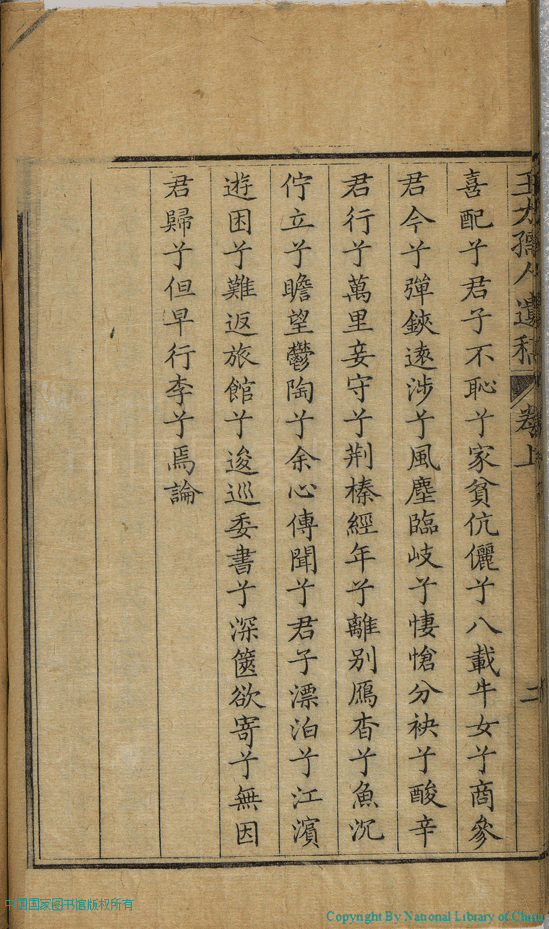 王太孺人遺稿 卷上 二
喜配兮君子不恥兮家貧伉儷兮八載牛女兮商參
君今兮彈鋏遠涉兮風塵臨岐兮悽愴分袂兮酸辛
君行兮萬里妾守兮荆榛經年兮離別鴈杳兮魚沉
佇立兮瞻望鬱陶兮余心傳聞兮君子漂泊兮江濱
遊困兮難返旅館兮逡巡委書兮深篋欲寄兮無因
君歸兮但早行李兮焉論
中国国家图书馆版权所有
Copyright By National Library of China